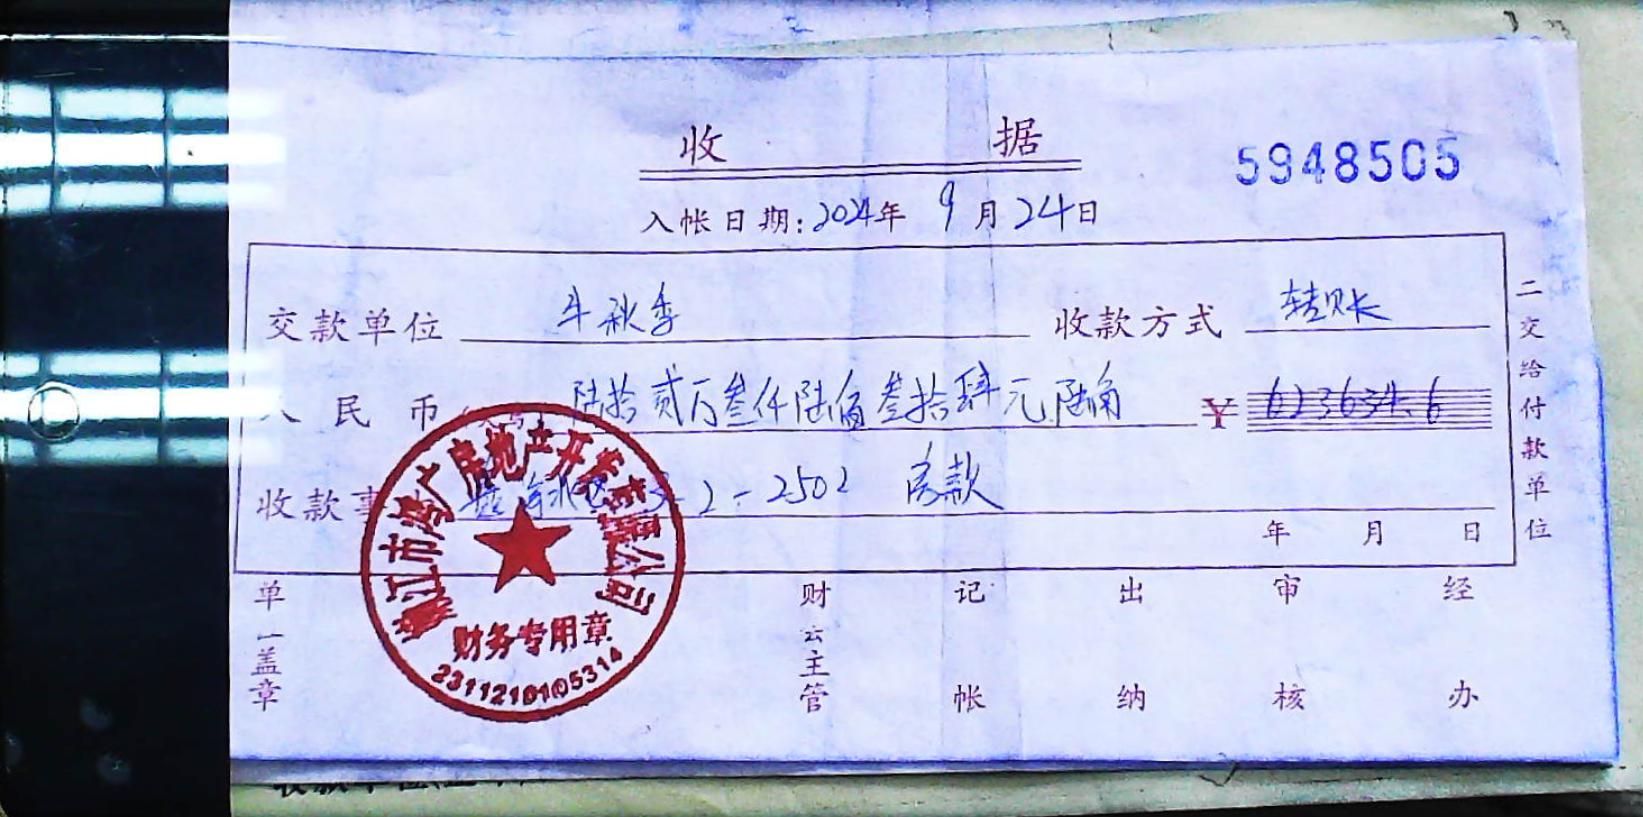 收 据
5948505
入帐日期:2024年 9月24日
交款单位 牛秋季 收款方式 转账
人民币 陆拾贰万叁仟陆佰叁拾肆元陆角 ¥ 623634.6
收款事 3-2-2502 房款
年 月 日
二交给付款单位
单 盖章
财 主管
记帐
出纳
审核
经办
江市 广房地产开 公司
财务专用章